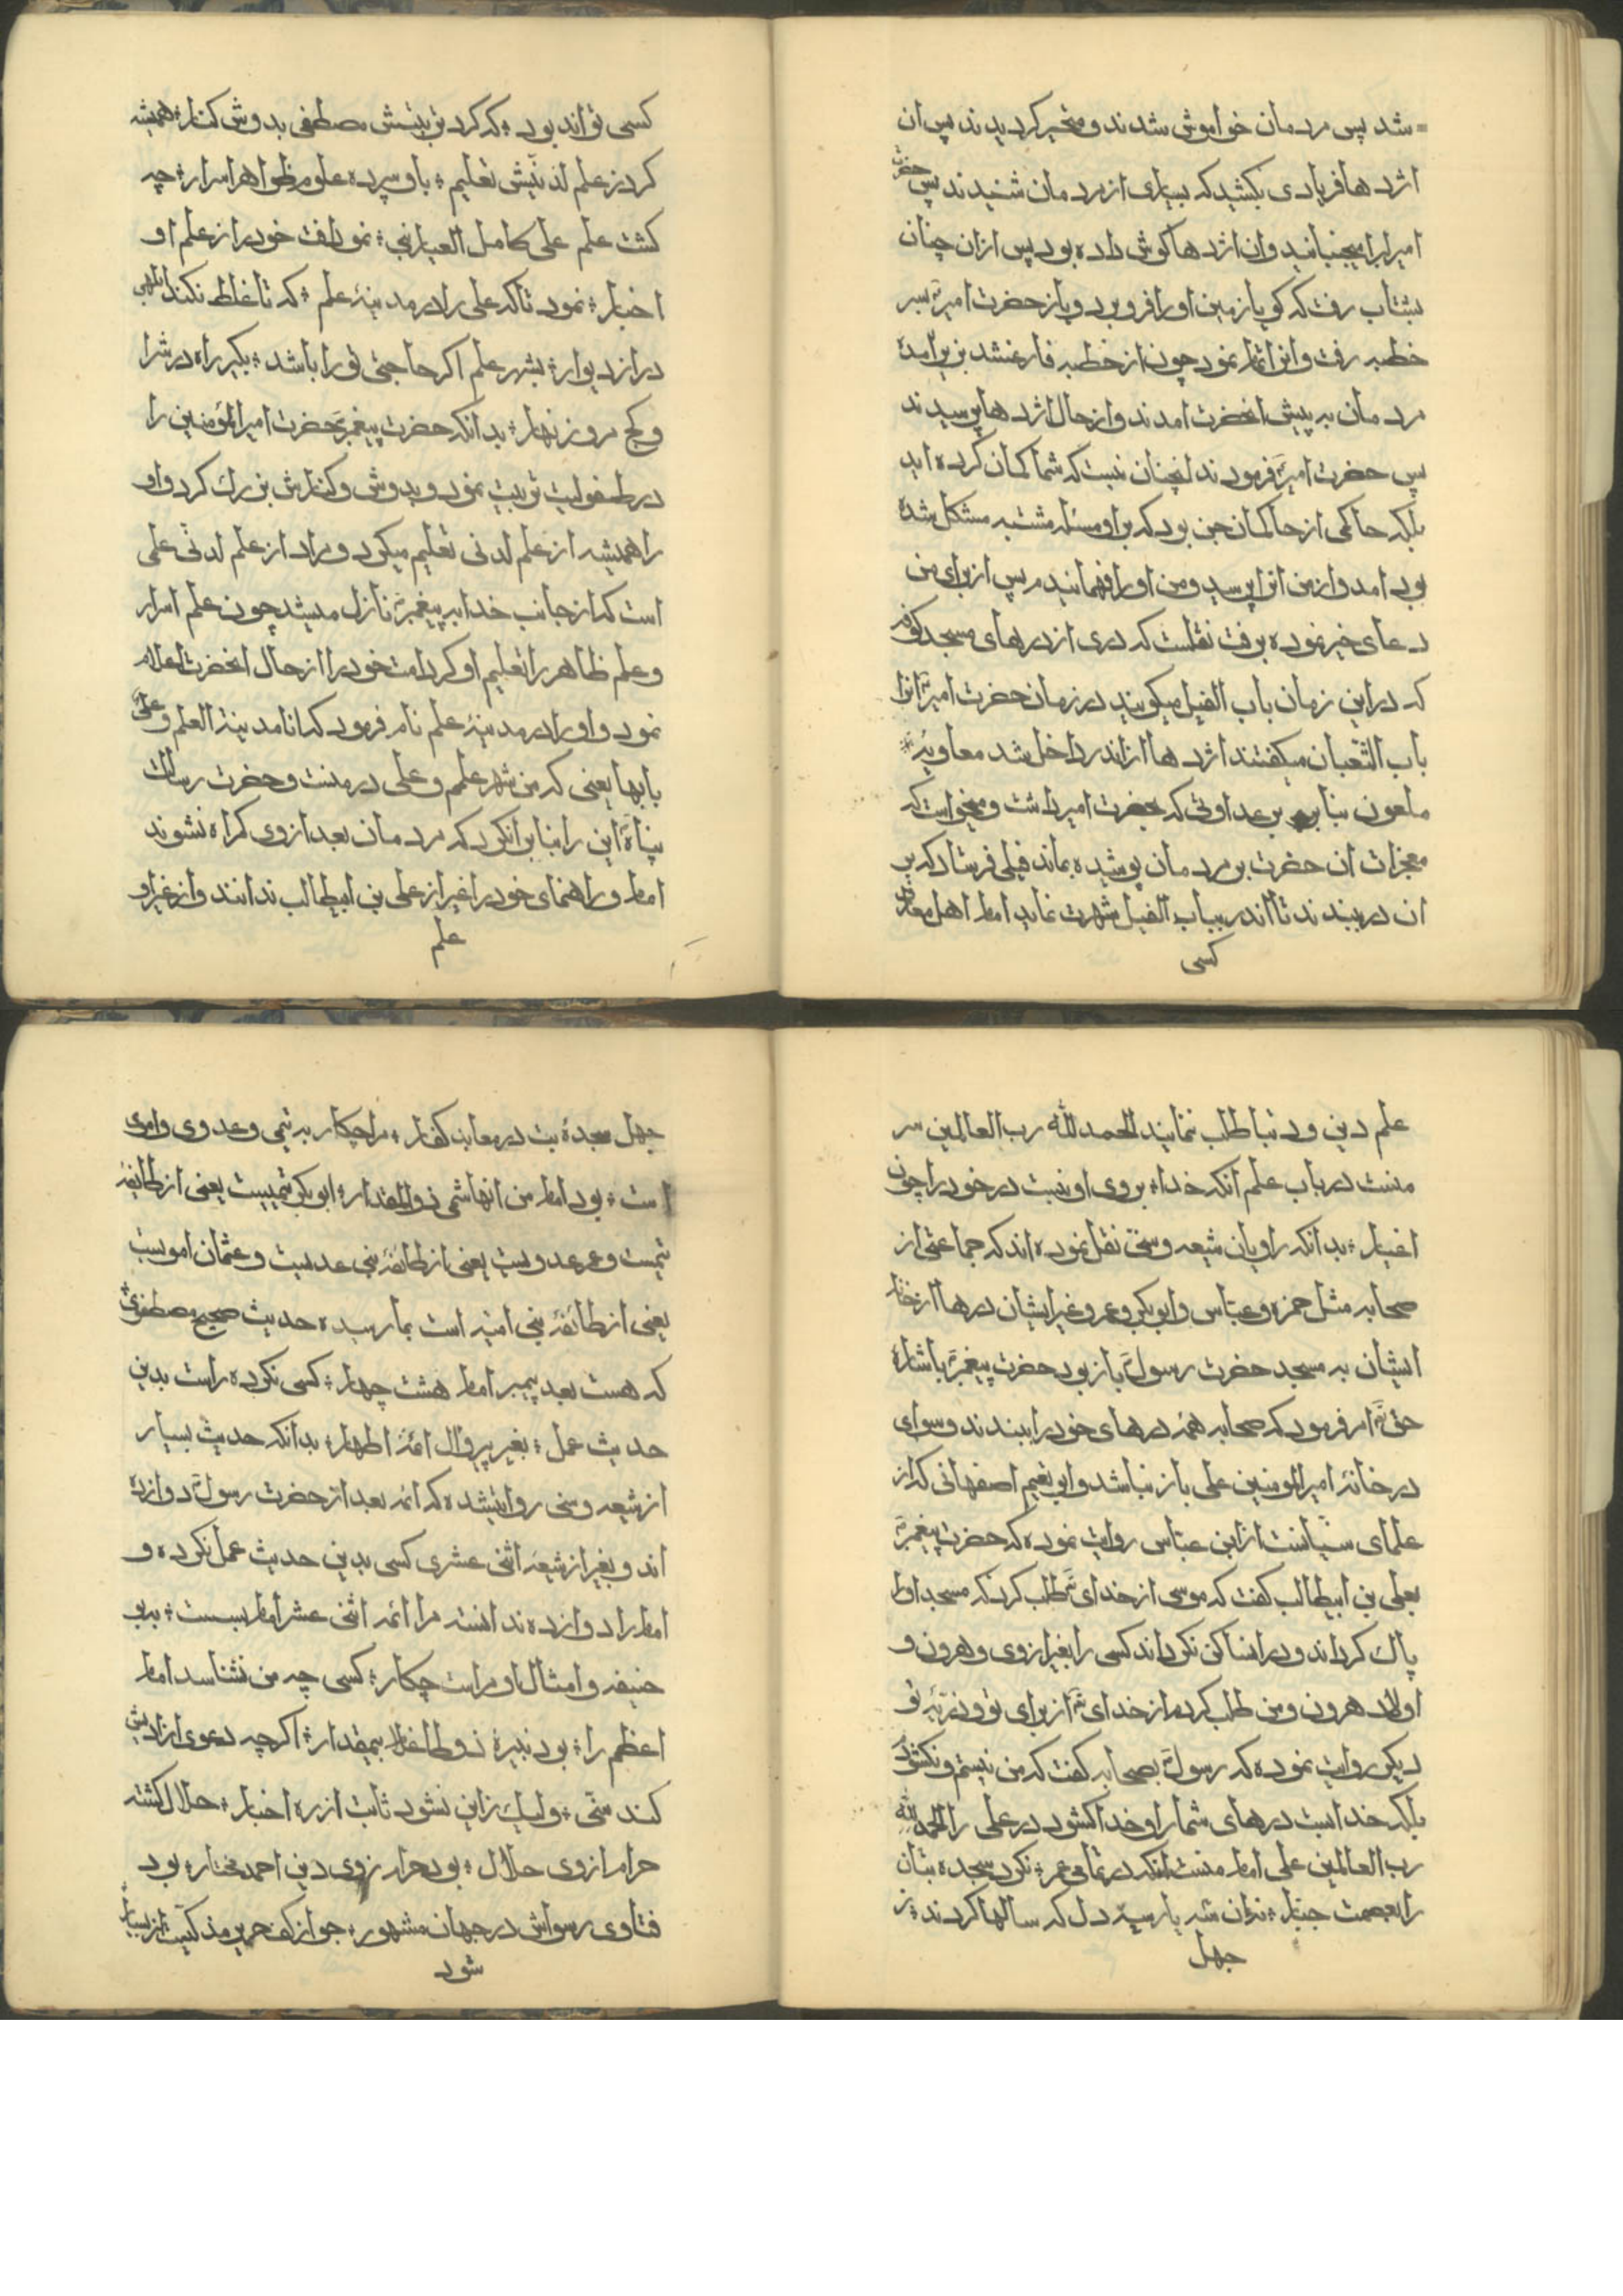 شد پس مردمان خواموش شدند و متحیر کردیدند پس ان
اژدها فریادی بکشید که بسیاری از مردمان شنیدند پس حضرت
امیر لبرا میجنبانید و ان اژدها کوش داده بود پس ازان چنان
بشتاب رفت که کویا زمین اورا فرو برد و باز حضرت امیرؑ بسر
خطبه رفت و انرا تمام نمود چون از خطبه فارغ شد بزیر آمده
مردمان به پیش انحضرت امدند و از حال اژدها پرسیدند
پس حضرت امیرؑ فرمودند انچنان نیست که شما کمان کرده اید
بلکه حاکمی از حاکمان جن بود که براو مسئله مشتبه مشکل شده
بود امد و از من انرا پرسید و من اورا فهمانیدم پس از برای من
دعای خیر نموده برفت نقلست که دری از درهای مسجد کوفه
که دراین زمان باب الفیل میکویند در زمان حضرت امیرؑ انرا
باب الثعبان میکفتند اژدها ازاندر داخل شد معاویه
ملعون بنابر عداوتی که بحضرت امیر داشت و میخواست که
معجزات ان حضرت بر مردمان پوشیده بماند فیلی فرستاد که بر
ان در ببندند تا اندر بباب الفیل شهرت نماید امام اهل معارف
کسی
کسی تواند بود ؛ که کرد تربیتش مصطفی بدوش کنار ؛ همیشه
کرد ز علم لدنیش تعلیم ؛ باو سپرده علوم ظواهر اسرار ؛ چه
کشت علم علی کامل العیار نبی ؛ نمود امت خود را ز علم او
اخبار ؛ نمود تا که علی را در مدینهٔ علم ؛ که تا غلط نکند ابلهی
در از دیوار ؛ بشهر علم اکر حاجتی ترا باشد ؛ بکیر راه در شرا
و کج مرو زنهار ؛ بدانکه حضرت پیغمبرؐ حضرت امیرالمؤمنین را
در طفولیت تربیت نمود و بدوش و کنارش بزرک کرد و او
را همیشه از علم لدنی تعلیم میکرد و مراد از علم لدنی علمی
است که از جانب خدا به پیغمبرؐ نازل میشد چون علم اسرار
و علم ظاهر را تعلیم او کرد امت خود را از حال انحضرت اعلام
نمود و اورا در مدینهٔ علم نام فرمود که انا مدینة العلم و علیؑ
بابها یعنی که من شهر علمم و علی در منست و حضرت رسالت
پناهؐ این را بنابرانکرد که مردمان بعد از وی کمراه نشوند
امام و راهنمای خود را غیر از علی بن ابیطالب ندانند و از غیر او
علم
علم دین و دنیا طلب ننمایند الحمد لله رب العالمین سر
منست در باب علم آنکه خدا ؛ بروی او نبست در خود را چون
اغیار ؛ بدانکه راویان شیعه و سنی نقل نموده اند که جماعتی از
صحابه مثل حمزه و عباس و ابوبکر و عمر و غیر ایشان درها از خانه
ایشان به مسجد حضرت رسولؐ باز بود حضرت پیغمبرؐ باشارهٔ
حق تَعَ امر فرمود که صحابه همه درهای خود را ببندند و سوای
در خانهٔ امیرالمومنین علی باز نباشد و ابو نعیم اصفهانی که از
علمای سنیانست از ابن عباس روایت نموده که حضرت پیغمبرؐ
بعلی بن ابیطالب کفت که موسی از خدای تَع طلب کرد که مسجد اورا
پاک کرداند و در انساکن نکرداند کسی را بغیر از وی و هرون و
اولاد هرون و من طلب کردم از خدای تَع از برای تو و ذریهٔ تو
دیکر روایت نموده که رسولؐ بصحابه کفت که من نبستم و نکشودم
بلکه خدا بست درهای شما را و خدا کشود در علی را الحمد لله
رب العالمین علی امام منست انکه در تمامی عمر ؛ نکرد سجده بتان
را بعصمت جبار ؛ نه ان سه یار سیه دل که سالها کردند ؛ ز
جهل
جهل سجدهٔ بت در معابد کفار ؛ مرا چکار به تیمی و عدوی و اموی
است ؛ بود امام من انهاشمی ذوالمقدار ؛ ابوبکر تیمیست یعنی از طائفهٔ
تیمست و عمر عدویست یعنی از طائفهٔ بنی عدیست و عثمان امویست
یعنی از طائفهٔ بنی امیه است بما رسیده حدیث صحیح مصطفوی
که هست بعد پیمبر امام هشت چهار ؛ کسی نکرده راست بدین
حدیث عمل ؛ بغیر پیرو ال ائمه اطهار ؛ بدانکه حدیث بسیار
از شیعه و سنی روایتشده که ائمه بعد از حضرت رسولؐ دوازده
اند و بغیر از شیعه اثنی عشری کسی بدین حدیث عمل نکرده و
امام را دوازده ندانسته مرا ائمه اثنی عشر امام بسست ؛ به بو
حنیفه و امثال او مراست چکار ؛ کسی چه من نشناسد امام
اعظم را ؛ بود نبیرهٔ ؛ اکر چه دعوی
کند سنی ؛ ولیک زاین نشود ثابت از ره اخبار ؛ حلال کشته
حرام از وی حلال ؛ بود حرام ز وی دین احمد مختار ؛ بود
فتاوی رسواش در جهان مشهور ؛ جواز
شود